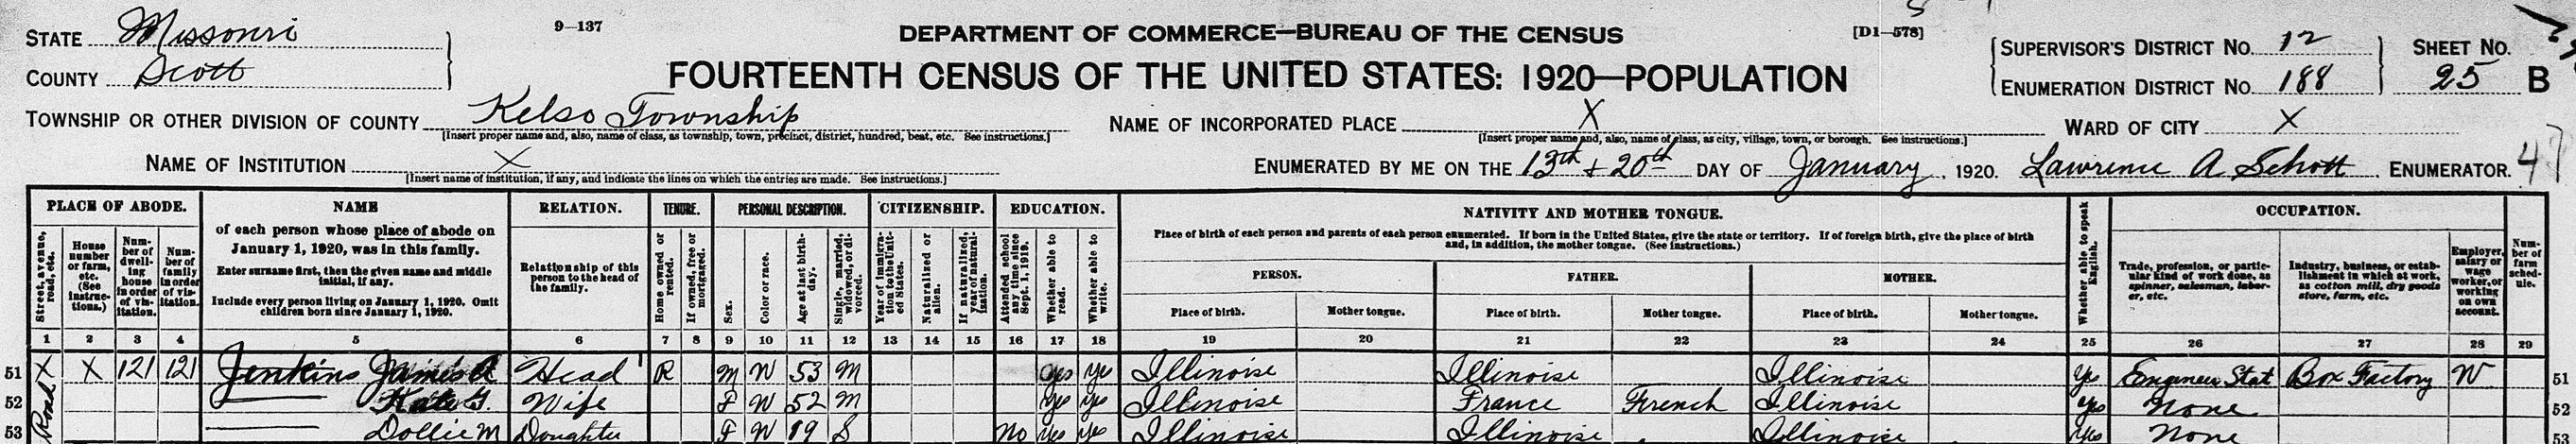 STATE Missouri
9—137
DEPARTMENT OF COMMERCE—BUREAU OF THE CENSUS
[D1—578]
SUPERVISOR'S DISTRICT NO. 12
SHEET NO.
COUNTY Scott
FOURTEENTH CENSUS OF THE UNITED STATES: 1920—POPULATION
ENUMERATION DISTRICT NO. 188
25 B
TOWNSHIP OR OTHER DIVISION OF COUNTY Kelso Township
[Insert proper name and, also, name of class, as township, town, precinct, district, hundred, beat, etc. See instructions.]
NAME OF INCORPORATED PLACE X
[Insert proper name and, also, name of class, as city, village, town, or borough. See instructions.]
WARD OF CITY X
NAME OF INSTITUTION X
[Insert name of institution, if any, and indicate the lines on which the entries are made. See instructions.]
ENUMERATED BY ME ON THE 13th + 20th DAY OF January, 1920. Lawrence A Schott, ENUMERATOR.
47
PLACE OF ABODE.
Street, avenue, road, etc.
House number or farm, etc. (See instructions.)
Number of dwelling house in order of visitation.
Number of family in order of visitation.
NAME
of each person whose place of abode on
January 1, 1920, was in this family.
Enter surname first, then the given name and middle
initial, if any.
Include every person living on January 1, 1920. Omit
children born since January 1, 1920.
RELATION.
Relationship of this
person to the head of
the family.
TENURE.
Home owned or rented.
If owned, free or mortgaged.
PERSONAL DESCRIPTION.
Sex.
Color or race.
Age at last birthday.
Single, married, widowed, or divorced.
CITIZENSHIP.
Year of immigration to the United States.
Naturalized or alien.
If naturalized, year of naturalization.
EDUCATION.
Attended school any time since Sept. 1, 1919.
Whether able to read.
Whether able to write.
NATIVITY AND MOTHER TONGUE.
Place of birth of each person and parents of each person enumerated. If born in the United States, give the state or territory. If of foreign birth, give the place of birth
and, in addition, the mother tongue. (See instructions.)
PERSON.
Place of birth.
Mother tongue.
FATHER.
Place of birth.
Mother tongue.
MOTHER.
Place of birth.
Mother tongue.
Whether able to speak English.
OCCUPATION.
Trade, profession, or partic-
ular kind of work done, as
spinner, salesman, labor-
er, etc.
Industry, business, or estab-
lishment in which at work,
as cotton mill, dry goods
store, farm, etc.
Employer, salary or wage worker, or working on own account.
Number of farm schedule.
1 2 3 4 5 6 7 8 9 10 11 12 13 14 15 16 17 18 19 20 21 22 23 24 25 26 27 28 29
51 X X 121 121 Jenkins James A Head R M W 53 M yes yes Illinoise Illinoise Illinoise yes Engineer Stat Box Factory W 51
52 Kate G. Wife F W 52 M yes yes Illinoise France French Illinoise yes none 52
53 Dollie M Doughter F W 19 S No yes yes Illinoise Illinoise Illinoise yes none 53
Road